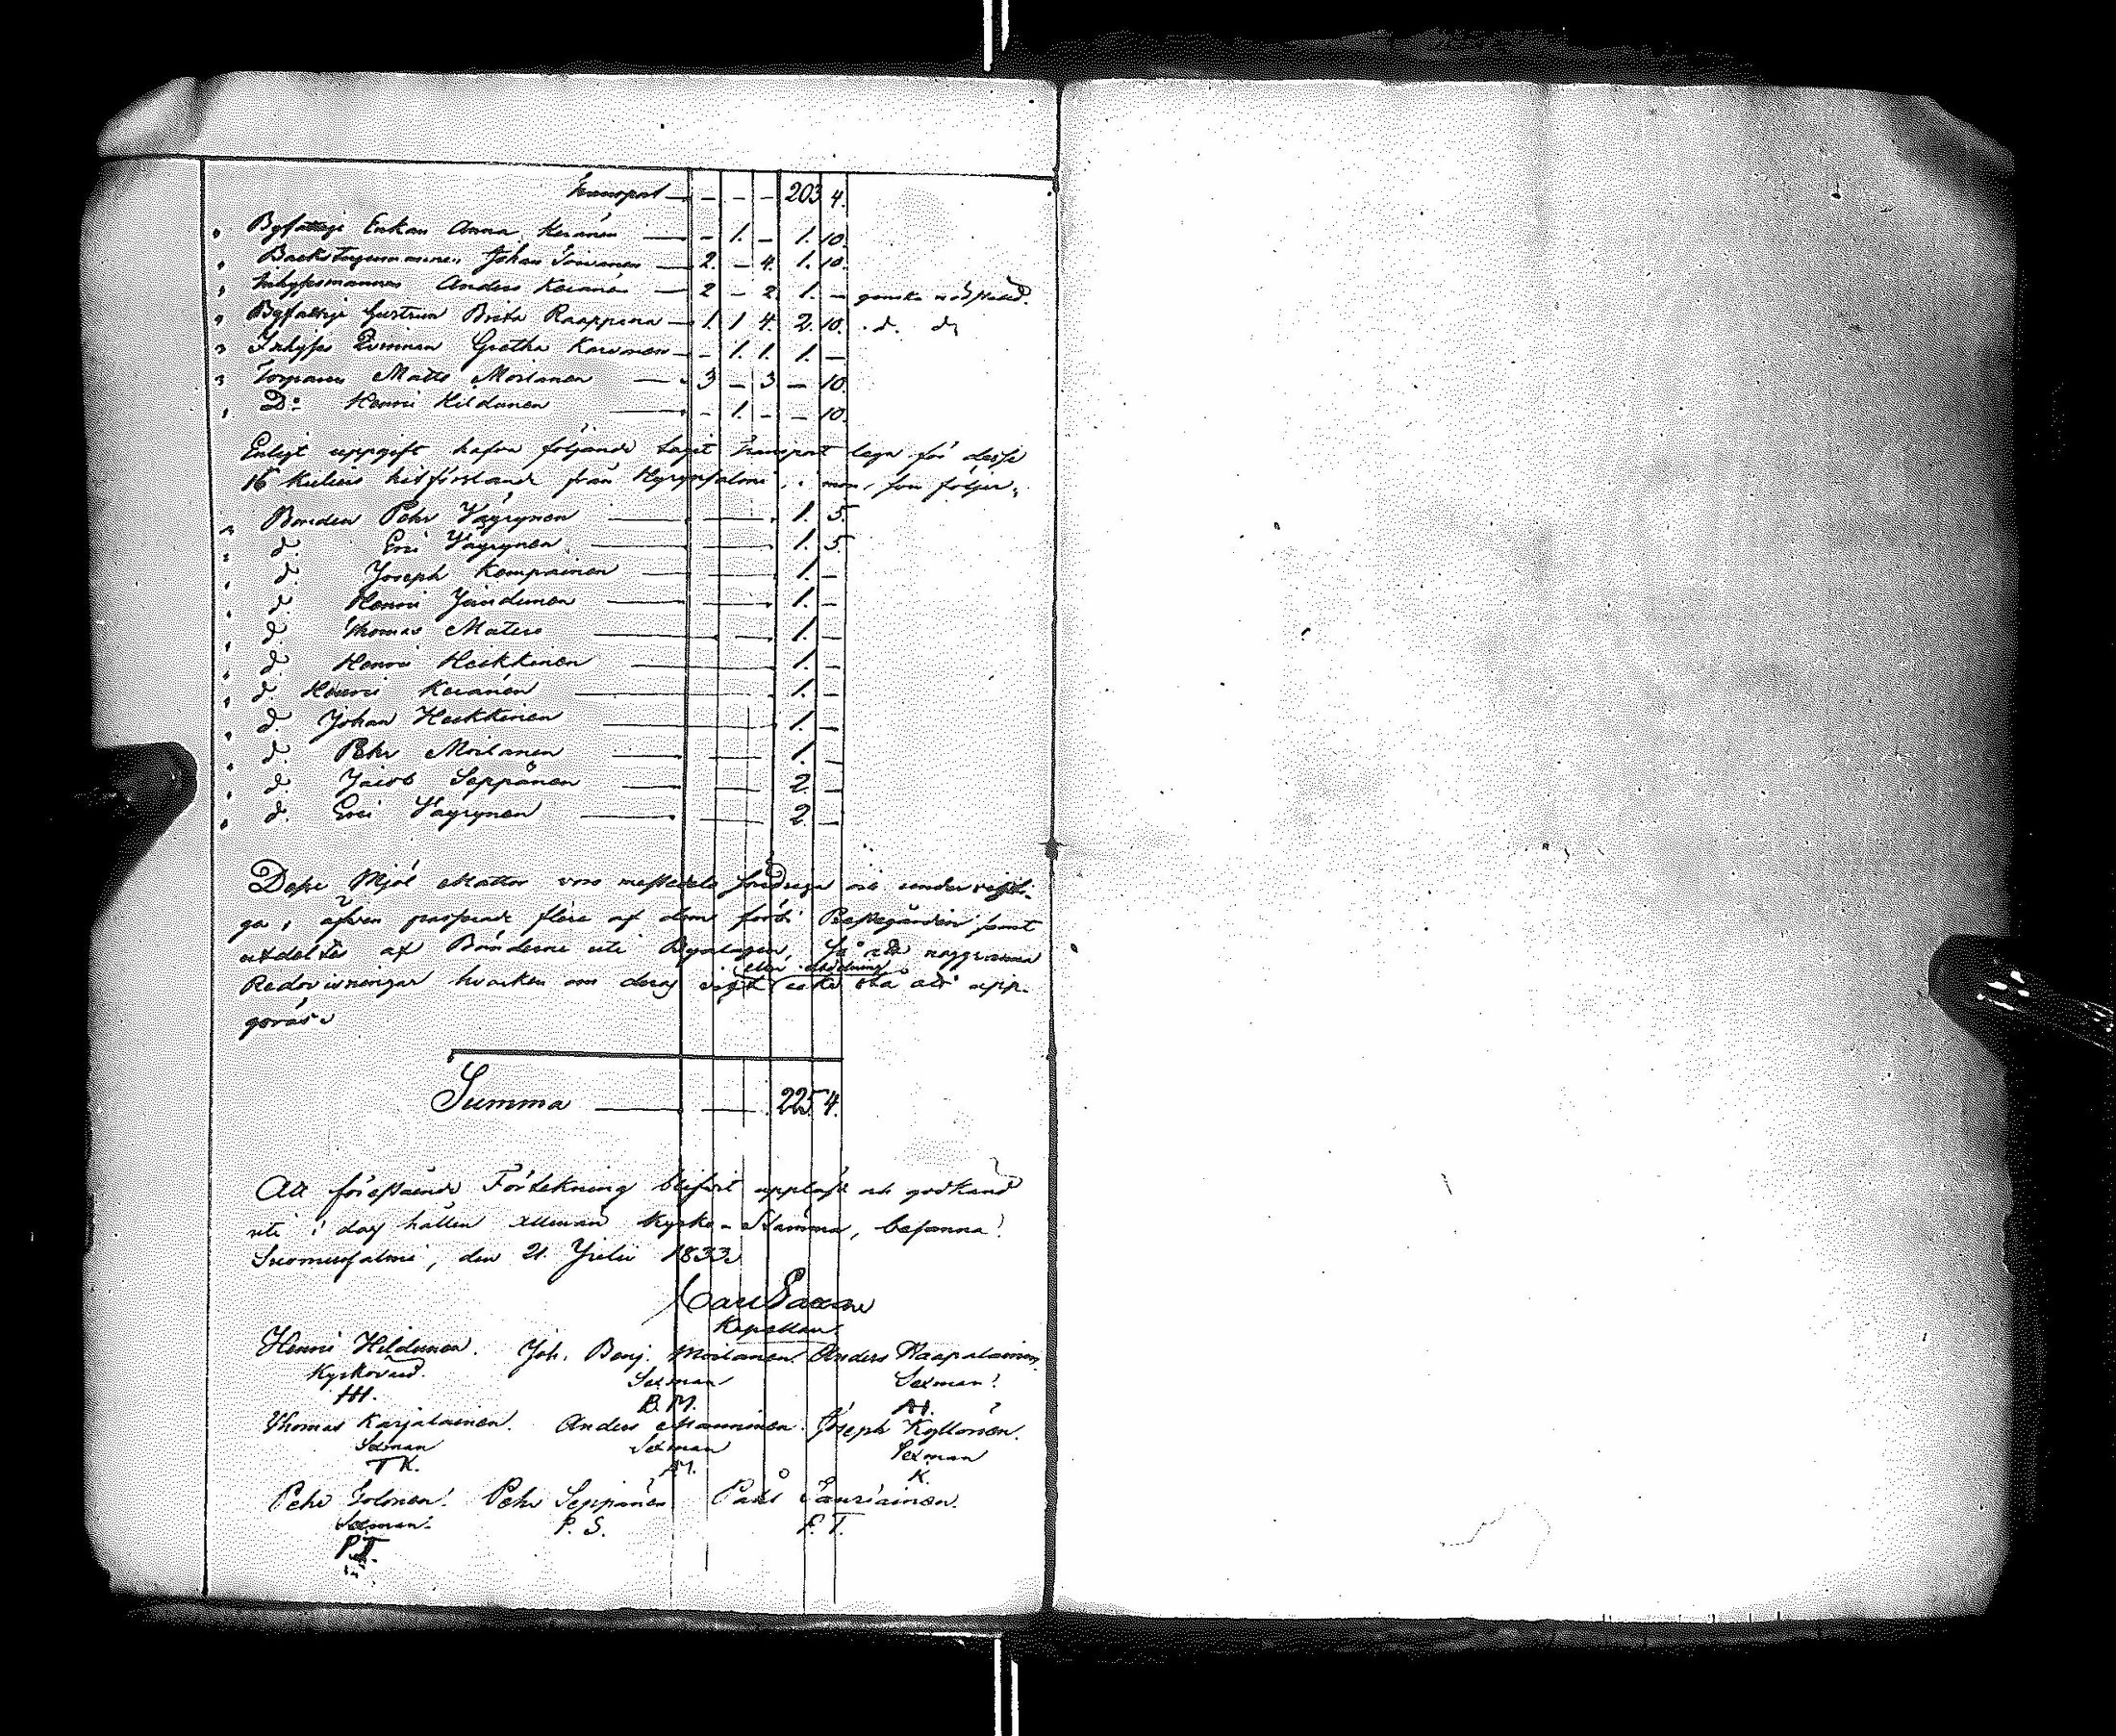 Transport — - - - 203 4.
" Byfattige Enkan Anna Keränen — - 1. - 1. 10.
" Johan — 2. - 4. 1. 10.
" Inhysesmannen Anders Keränen — 2 - 2 1. - ganska
" Byfattige Hustrun Brita Raappana — 1. 1 4. 2. 10. d. d:
" Inhyses Qvinnan Gretha Karvonen — - 1. 1. 1. —
" Torparen Matts Moilanen — 3 - 3 — 10.
" D:o Henric Hildunen — - 1. - - 10.
Enligt uppgift hafva följande tagit Transport lega för desse
16 Kulier hitförslande från Hyrynsalmi, i mon, som följer:
" Bonden Pehr Väyrynen — 1. 5.
" d. Eric Väyrynen — 1. 5.
" d. Joseph Kemppainen — 1. -
" d. Henric — 1. -
" d. Thomas Matero — 1. -
" d. Henric Heikkinen — 1. -
" d. Henric Keränen — 1. -
" d. Johan Heikkinen — 1. -
" d. Pehr Moilanen — 1. -
" d. Jacob Seppänen — 2. -
" d. Eric Väyrynen — 2. -
Desse Mjöl Mattor voro mestadels och undervigti-
ga; äfven passerade flere af dem förbi Prestegården samt
utdeltes af Bönderne uti Byalagen, så att noggranna
Redovisningar hvarken om deras vigt eller utdelning icke stå att upp-
göras.
Summa — 225 4.
Att förestående Förtekning blifvit uppläst och godkänd
uti i dag hållen allmän Kyrko-Stämma, besanna!
Suomussalmi, den 21. Julii 1833.
Carl Saxan
Kapellan.
Henric Hildunen. Joh. Benj. Moilanen. Anders Haapalainen.
Kyrkovärd. Sexman Sexman.
HH. B.M. AH.
Thomas Karjalainen. Anders Manninen. Joseph Kyllönen.
Sexman Sexman Sexman
TK. AM. K.
Pehr Tolonen. Pehr Seppänen Påhl Tauriainen.
Sexman. P. S. P. T.
P.T.